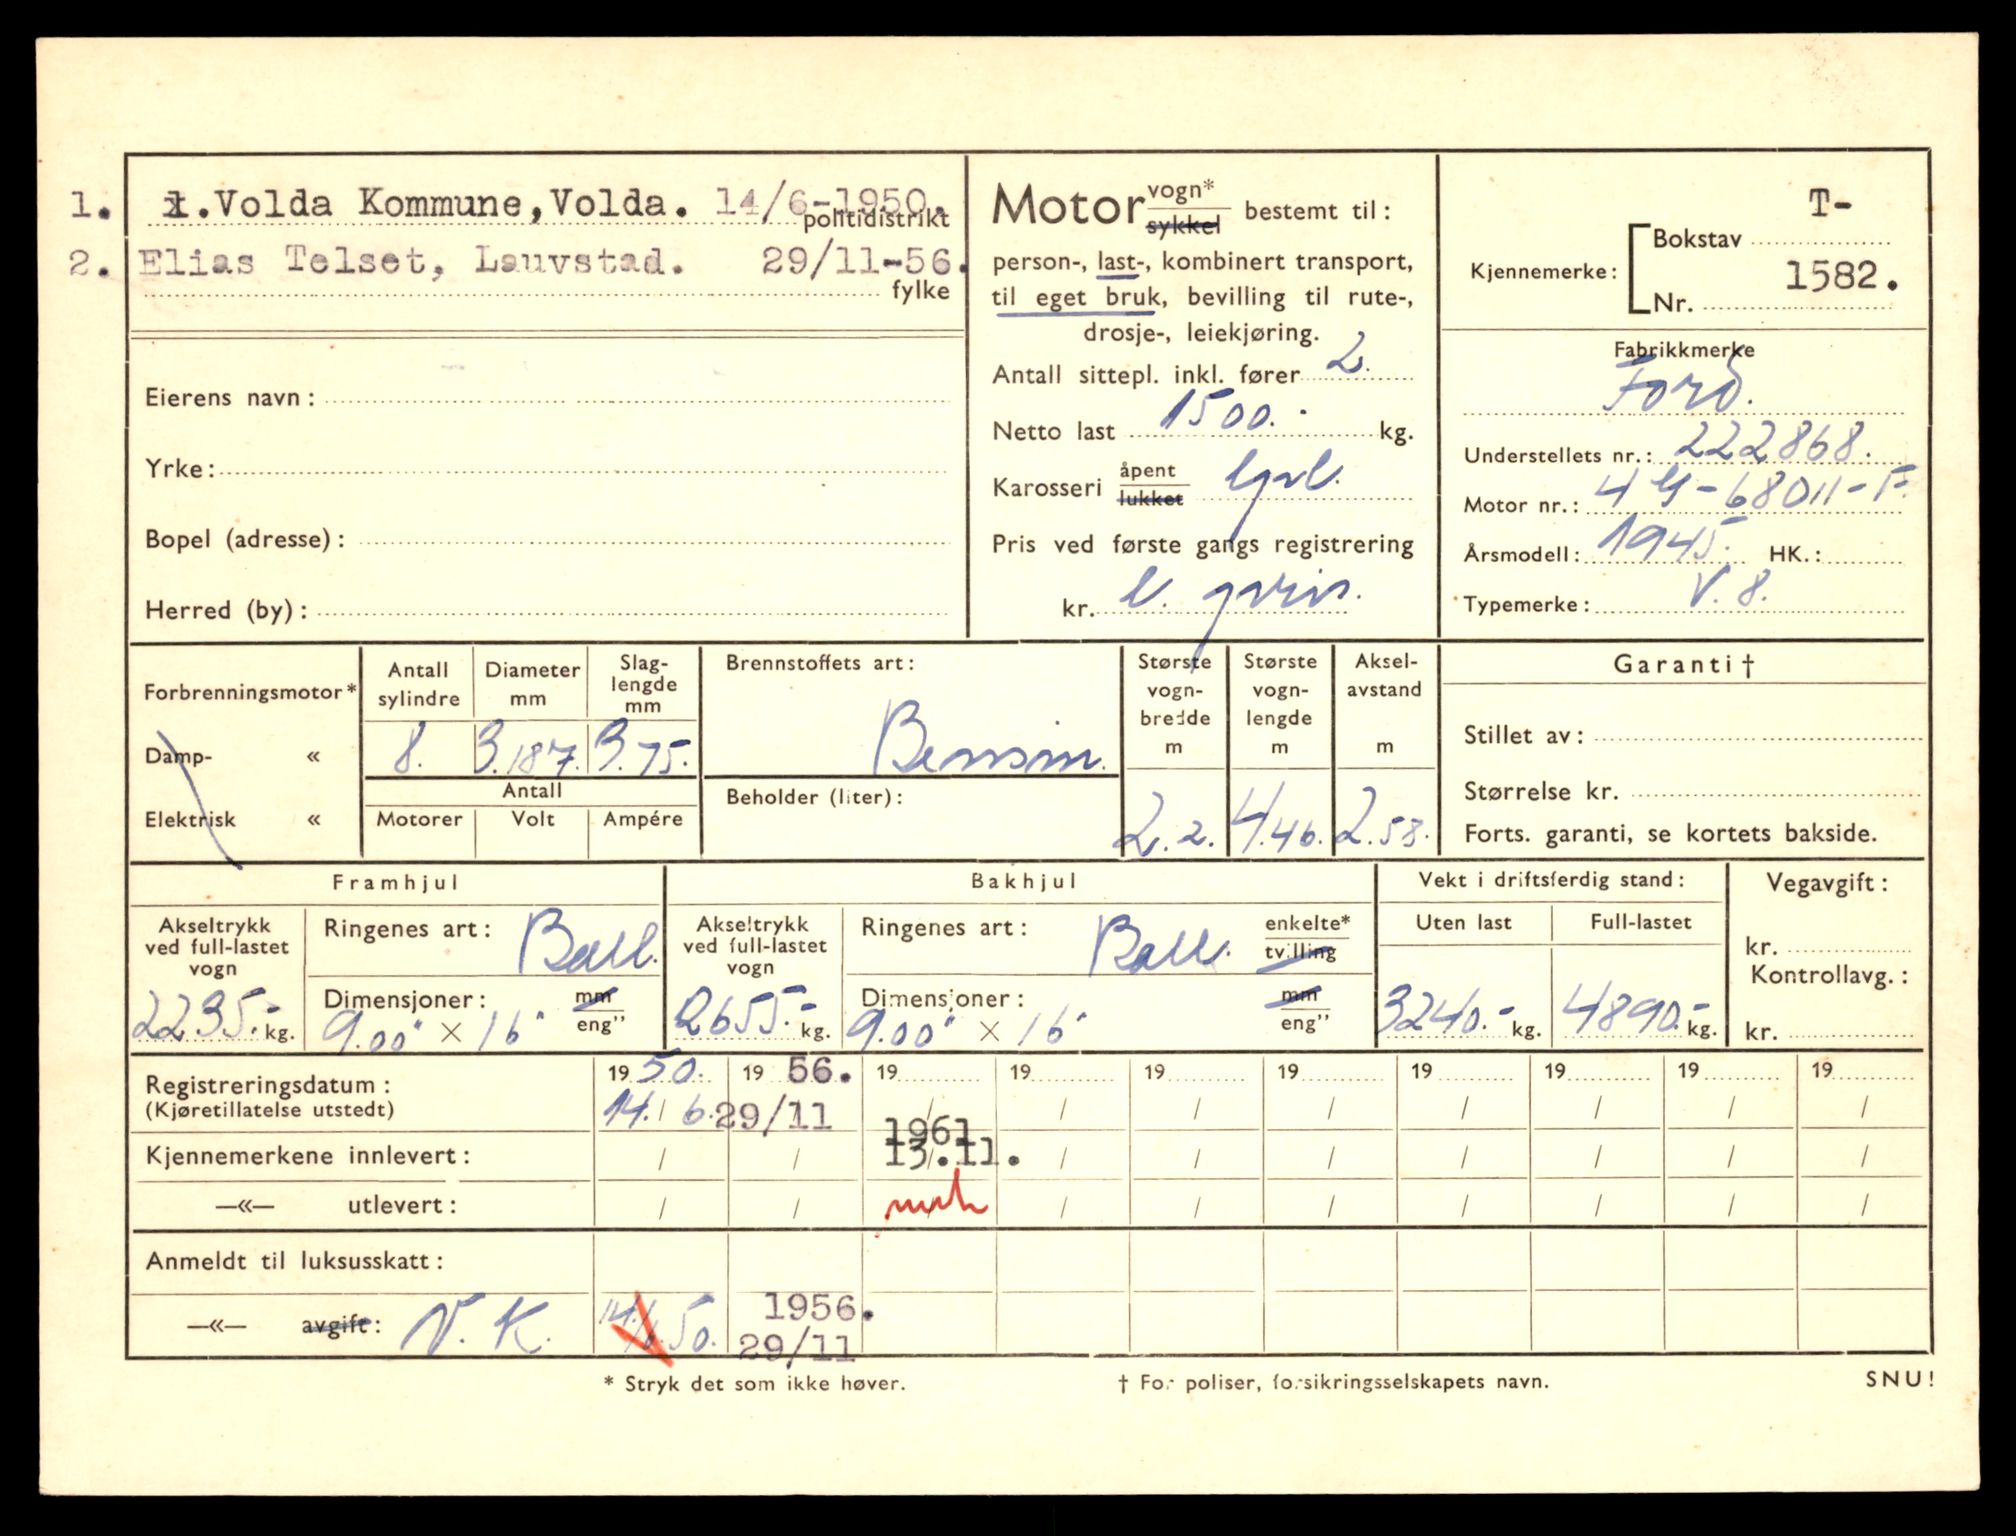 1. 1.Volda Kommune,Volda. 14/6-1950.
politidistrikt
2. Elias Telset, Lauvstad. 29/11-56.
fylke
Eierens navn:
Yrke:
Bopel (adresse):
Herred (by):
Motor vogn*
sykkel bestemt til:
person-, last-, kombinert transport,
til eget bruk, bevilling til rute-,
drosje-, leiekjøring.
Antall sittepl. inkl. fører 2.
Netto last 1500.- kg.
Karosseri åpent
lukket
Pris ved første gangs registrering
kr.
T-
Bokstav
Kjennemerke:
1582.
Nr.
Fabrikkmerke
Ford.
Understellets nr.: 222868.
Motor nr.: 4 G-68011-F.
Årsmodell: 1945. HK.:
Typemerke: V. 8.
Forbrenningsmotor*
Damp- «
Elektrisk «
Antall sylindre
8.
Diameter mm
3.187.
Slag-lengde mm
3.75.
Antall
Motorer Volt Ampére
Brennstoffets art:
Bensin.
Beholder (liter):
Største vogn-bredde m
2.2.
Største vogn-lengde m
4.46.
Aksel-avstand m
2.58.
Garanti †
Stillet av:
Størrelse kr.
Forts. garanti, se kortets bakside.
Framhjul
Akseltrykk ved full-lastet vogn
2235.- kg.
Ringenes art: Ball.
Dimensjoner: mm
eng"
9.00" × 16"
Bakhjul
Akseltrykk ved full-lastet vogn
2655.- kg.
Ringenes art: Ball. enkelte*
tvilling
Dimensjoner: mm
eng"
9.00" × 16"
Vekt i driftsferdig stand:
Uten last Full-lastet
3240.- kg. 4890.- kg.
Vegavgift:
kr.
Kontrollavg.:
kr.
Registreringsdatum: 1950. 19 56. 19 19 19 19 19 19 19 19
(Kjøretillatelse utstedt) 14./6. 29/11 / / / / / / / /
1961
Kjennemerkene innlevert: / / 13.11. / / / / / / /
—«— utlevert: / / / / / / / / / /
Anmeldt til luksusskatt:
—«— avgift: V. K. 14./6.50. 1956.
29/11
* Stryk det som ikke høver.
† For poliser, forsikringsselskapets navn.
SNU!